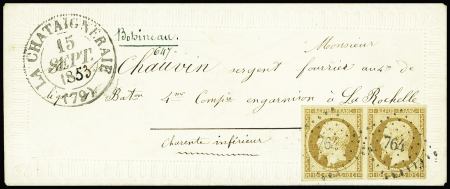 LA CHATAIGNERAIE
15
SEPT.
1853
(79)
Bobineau.
647.
Monsieur
Chauvin sergent fourrier au 4me de
47me Baton 4me Compie en garnison à La Rochelle
Charente inférieur
REPUB. FRANC. REPUB. FRANC.
764 764